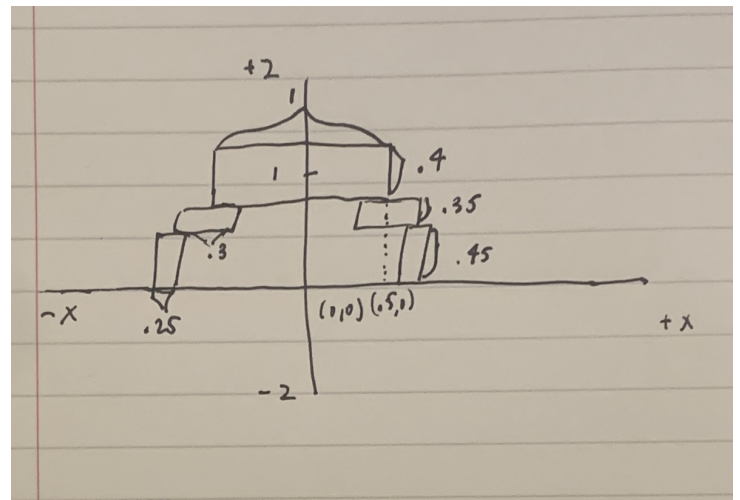 +2
1
1
.4
.35
.3
.45
-x
.25
(0,0) (.5,0)
+x
-2